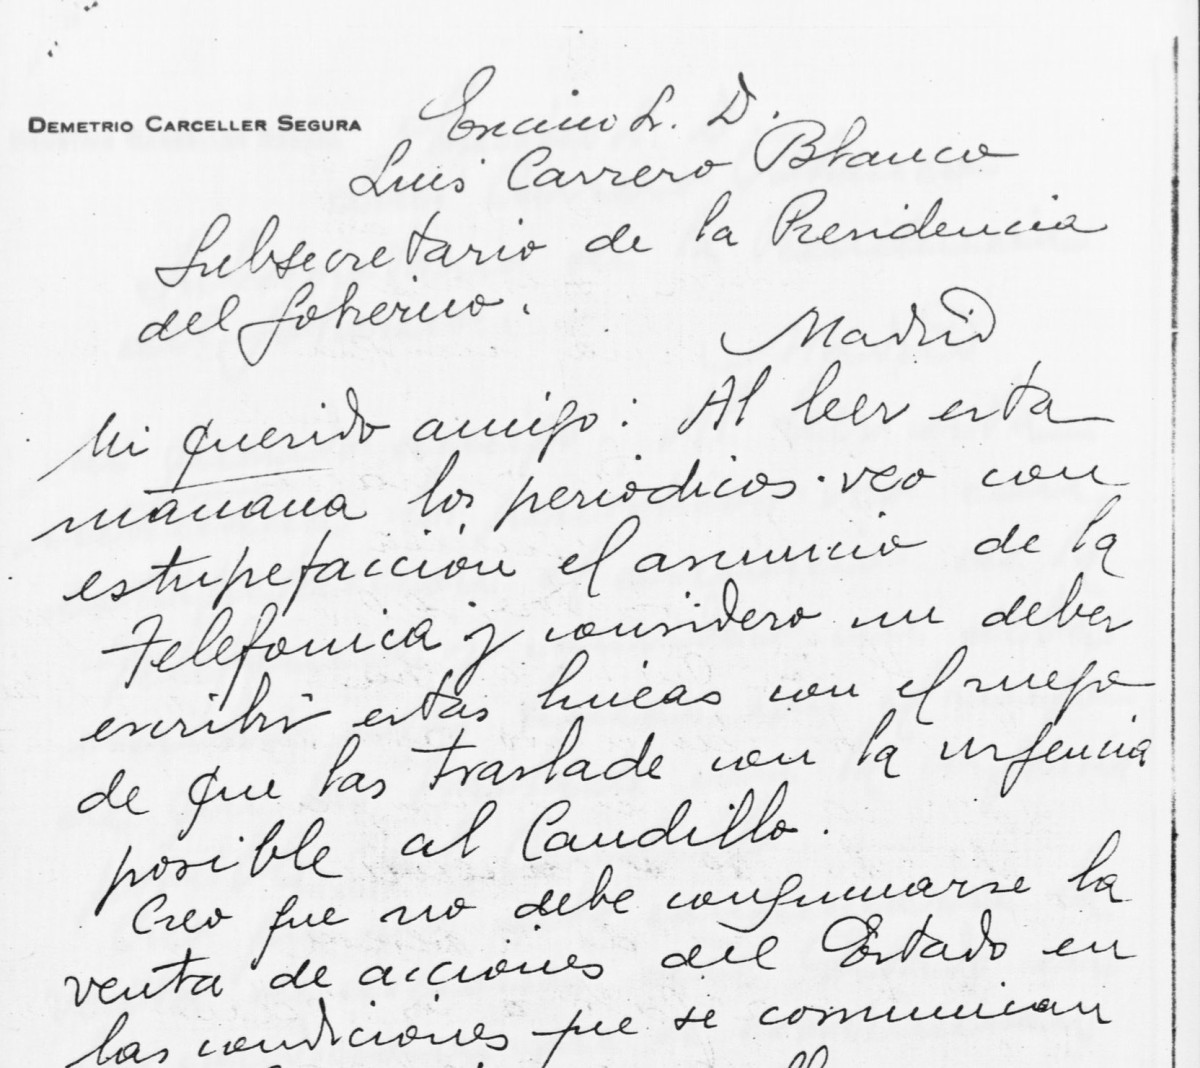 DEMETRIO CARCELLER SEGURA
Excmo Sr. D.
Luis Carrero Blanco
Subsecretario de la Presidencia
del Gobierno.
Madrid
Mi querido amigo: Al leer esta
mañana los periodicos veo con
estupefacción el anuncio de la
Telefonica y considero un deber
escribir estas lineas con el ruego
de que las traslade con la urgencia
posible al Caudillo.
Creo que no debe consumarse la
venta de acciones del Estado en
las condiciones que se comunican